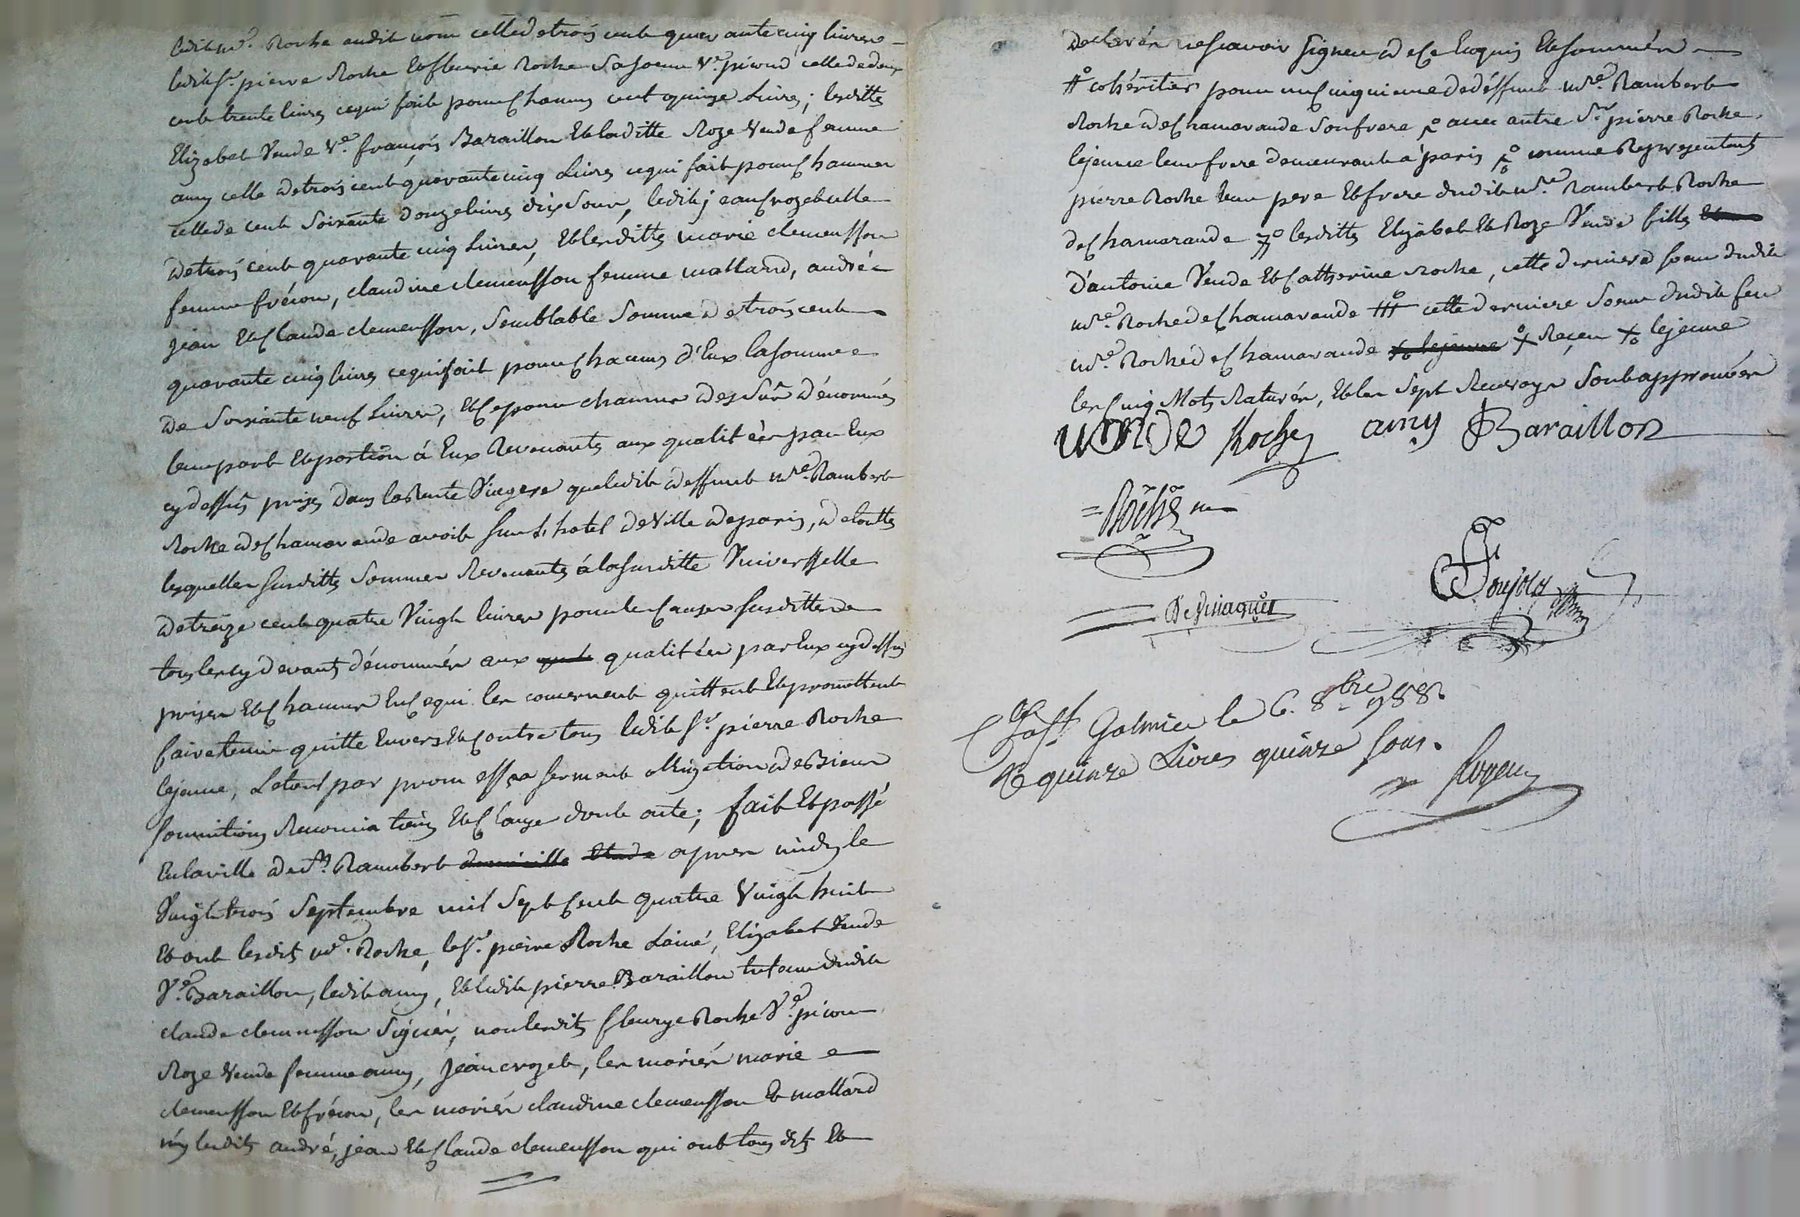 ledit mre. Roche audit nom celle de trois cent quarante cinq livres
ledit sr. pierre Roche Et fleurie Roche sa soeur ve. picoud celle de deux
cent trente livres ce qui fait pour Chacun cent quinze Livres; lesdittes
Elizabet Vende ve. françois Baraillon Et laditte Roze Vende femme
amy celle de trois cent quarante cinq Livres ce qui fait pour Chacune
celle de cent soixante douze livres dix sous, ledit jean crozet celle
de trois cent quarante cinq Livres, Et lesdittes marie clemensson
femme frécon, claudine clemensson femme mallard, andré
jean Et Claude clemensson, semblable somme de trois cent
quarante cinq livres ce qui fait pour Chacuns d'Eux la somme
de soixante neuf Livres, Et Ce pour chacuns des sûs dénommés
leur part Et portion á Eux Revenants aux qualitées par Eux
cy dessûs prises dans la Rente Viagere que ledit deffunt mre. Rambert
Roche de Chamarande avoit sur L'hotel de Ville de paris, de touttes
lesquelles susdittes sommes Revenants á la susditte Universselle
de treize cent quatre Vingt livres pour les Causes susdittes
tous les cy devant dénommés aux qualitées par Eux cy dessûs
prises Et Chacuns En Ce qui les concernent quittent Et promettent
faire tenir quitte Envers Et Contre tous ledit sr. pierre Roche
lejeune, Le tout par promesses serment obligation de Biens
soumitions Renonciations Et Clause dont acte; fait Et passé
En la ville de st. Rambert apres midy le
Vingt trois septembre mil sept Cent quatre Vingt huit
Et ont lesdits mre. Roche, le sr. pierre Roche Lainé, Elizabet Vende
Ve. Baraillon, ledit amy, Et ledit pierre Baraillon tuteur dudit
claude clemensson signés, non lesdits fleurye Roche Ve. picou
Roze Vende femme amy, jean crozet, les mariés marie
clemensson Et frécon, les mariés claudine clemensson Et mallard
ny lesdits andré, jean Et Claude clemensson qui ont tous dits Et
declarés ne scavoir signer de Ce Enquis Et sommés
# cohéritier pour un Cinquieme de déffunt mre. Rambert
Roche de Chamarande son frere avec autre sr. pierre Roche
lejeune leur frere demeurant á paris comme Representants
pierre Roche leur pere Et frere dudit mre. Rambert Roche
de Chamarande lesdittes Elizabet Et Roze Vende filles
d'antoine Vende Et Catherine Roche, cette derniere soeur dudit
mre. Roche de Chamarande # cette derniere soeur dudit feu
mre. Roche de Chamarande lejeune
les Cinq Mots Raturés, Et les sept Renvoys sont approuvés
vende Roche amy Baraillon
Roche
Devinaquet
Goujon
a st. Galmier le 6. 8bre 1788.
R quinze Livres quinze sous.